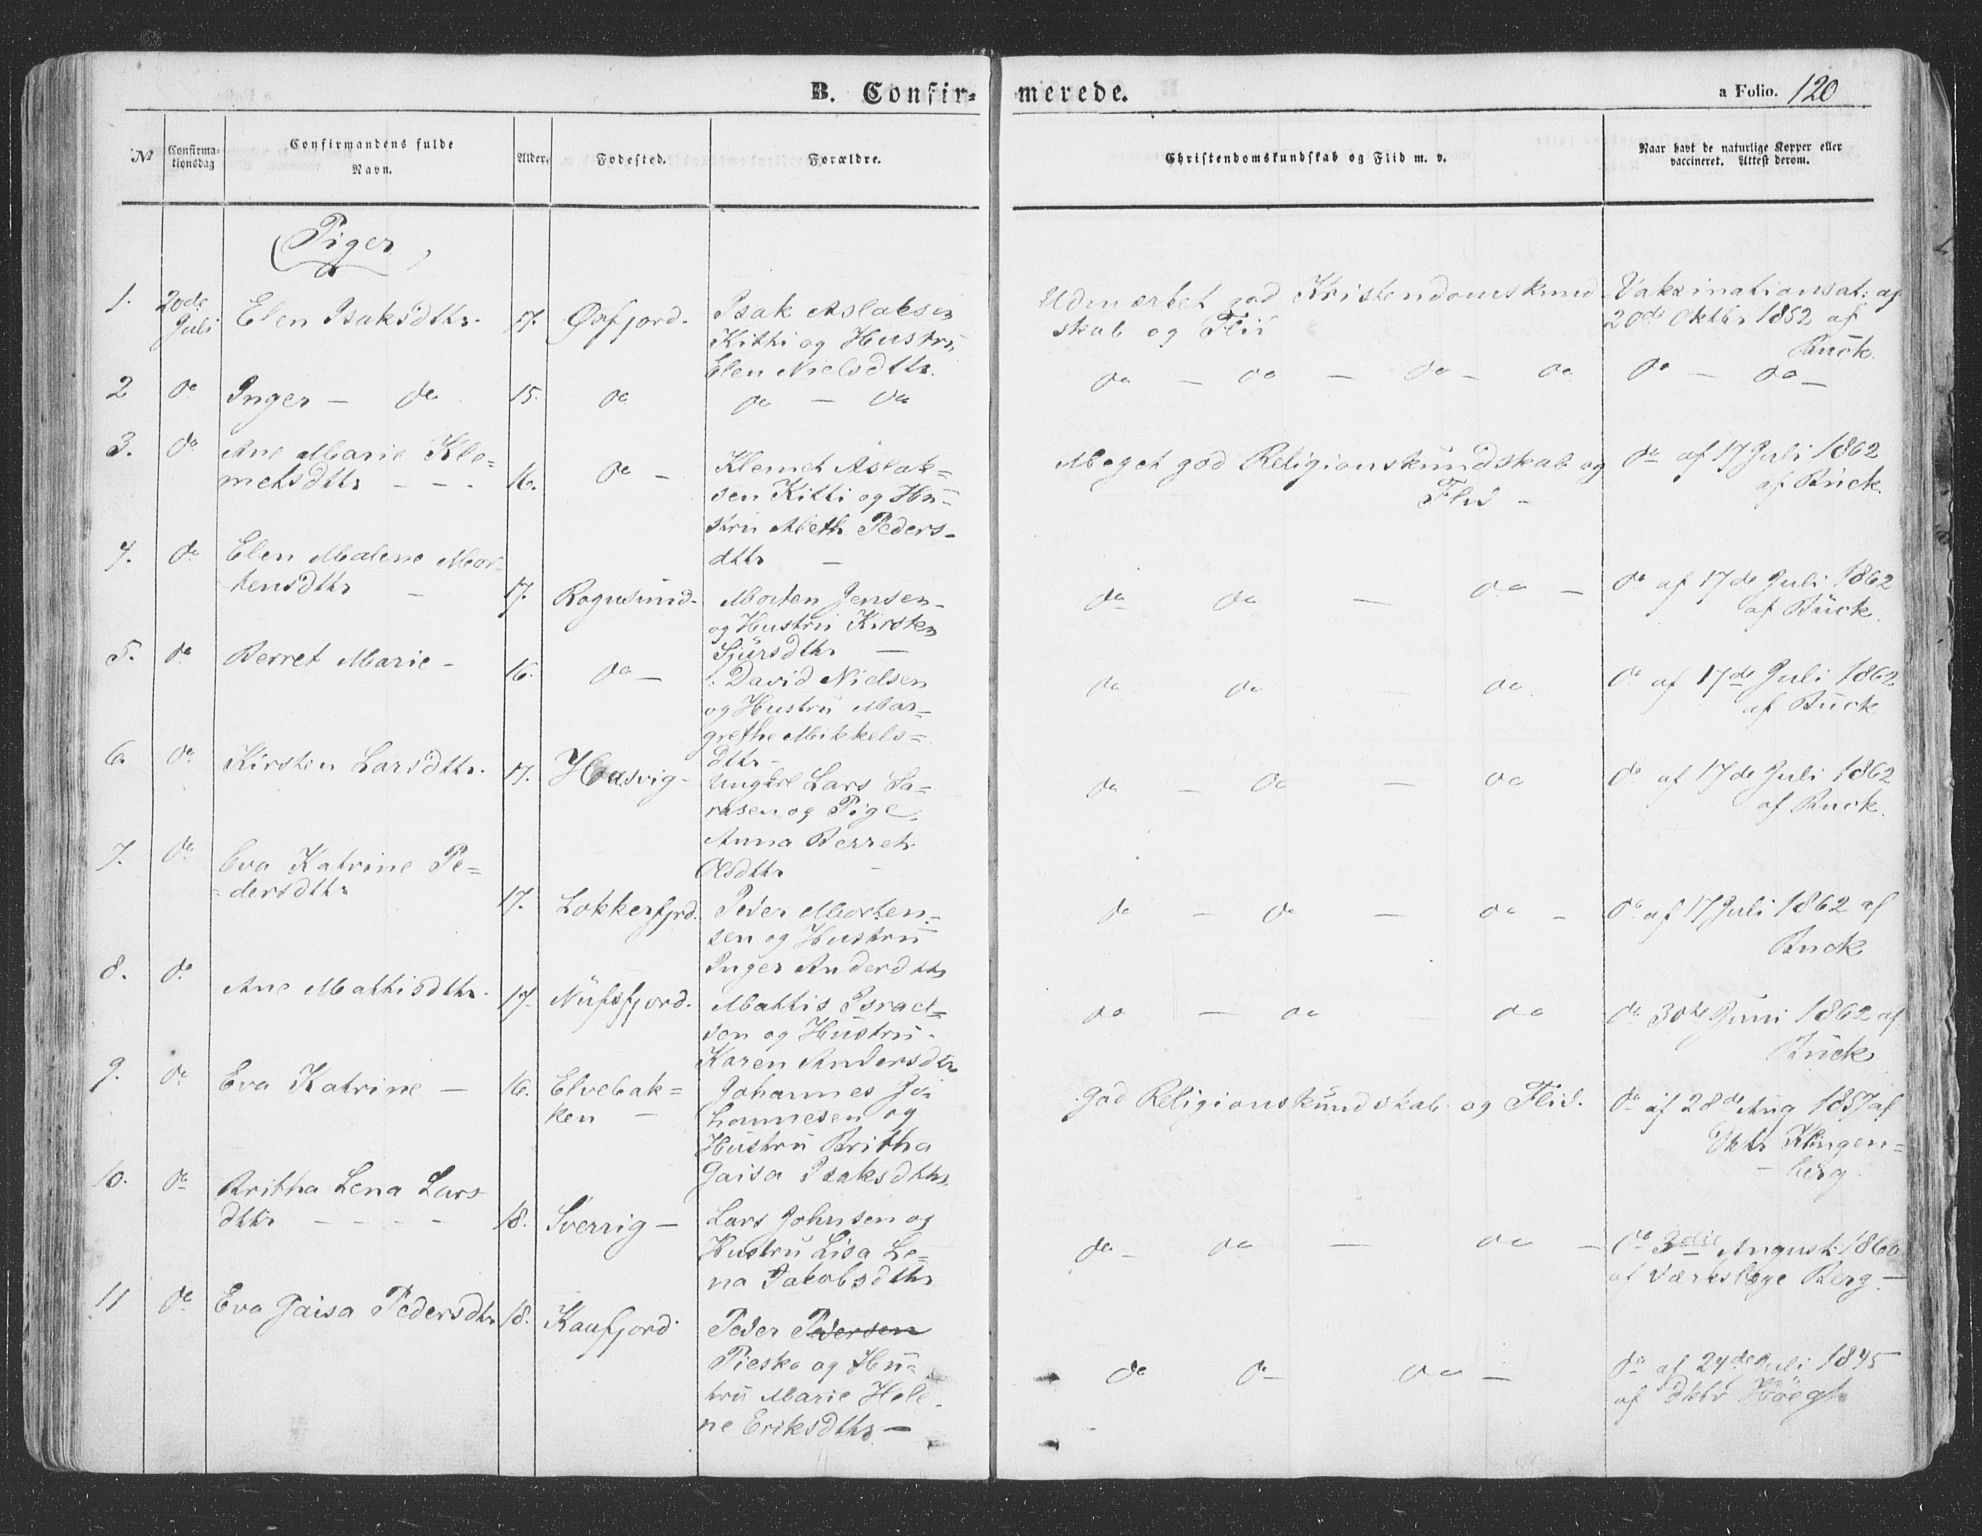 B. Confir=
merede.
a Folio. 120
№
Confirma-
tionsdag
Confirmandens fulde
Navn.
Alder.
Fødested.
Forældre.
Christendomskundskab og Flid m. v.
Naar havt de naturlige Kopper eller
vaccineret. Attest derom.
Piger
1. 20de
Juli
Elen Isaksdthr. 17. Øxfjord.
Isak Aslaksen
Kitti og Hustru
Elen Nielsdthr.
Udmærket god Kristendomskund
skab og Flid
Vaksinationsat. af
20de Oktbr 1852 af
Buck.
2 do Inger — do 15. do do — do
do — do — do — do do — do —
3. do Ane Marie Kle=
metsdthr — — 16. do —
Klemet Aslak=
sen Kitti og Hu=
stru Aleth Peders=
dthr —
Meget god Religionskundskab og
Flid —
do af 17 Juli 1862
af Buck.
4. do Elen Malene Mor-
tensdthr — 17. Rognsund.
Morten Jensen
og Hustru Kirsten
Sjursdthr —
do do — do —
do af 17de Juli 1862
af Buck.
5. do Berret Marie — 16. do —
David Nielsen
og Hustru Mar=
grethe Mikkels=
dthr —
do do — do
do af 17de Juli 1862
af Buck
6. do Kirsten Larsdthr. 17. Hasvig —
Ungkrl Lars La=
rssen og Pige
Anna Berret
Olsdthr —
do — do — do
do af 17de Juli 1862
af Buck.
7. do Eva Katrine Pe=
dersdthr 17. Lokkerfjrd.
Peder Morten=
sen og Hustru
Inger Andersdthr
do — do — do —
do af 17 Juli 1862 af
Buck
8. do Ane Mathisdthr. 17. Nufsfjord.
Mattis Israel=
sen og Hustru
Karen Andersdthr
do — do — do
do 30te Juni 1862 af
Buck
9. do Eva Katrine — 16. Elvebak=
ken —
Johannes Jo
hannesen og
Hustru Britha
Gaisa Isaksdthr.
God Religionskundskab og Flid.
do af 28de Aug 1857 af
Dktr Klingen=
berg.
10. do Britha Lena Lars
dthr — — — — 18. Sverrig —
Lars Johnsen og
Hustru Lisa Le=
na Jakobsdthr
do — do — do —
do 3die August 1860
af Værkslæge Berg —
11 do Eva Gaisa Pedersdthr 18. Kaafjord
Peder Pedersen
Pieska og Hu=
tru Marie Hele
ne Eriksdthr —
do do — do —
do af 24de Juli 1845
af Dktr Höegh